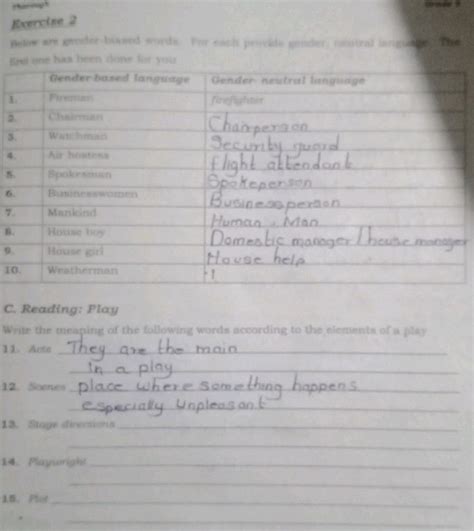 Thorough Grade 9
Exercise 2
Below are gender-biased words. For each provide gender, neutral language. The
first one has been done for you
Gender-based language Gender- neutral language
1. Fireman firefighter
2. Chairman Chairperson
3. Watchman Security guard
4. Air hostess flight attendant
5. Spokesman Spokeperson
6. Businesswomen Businessperson
7. Mankind Human, Man
8. House boy Domestic manager / house manager
9. House girl House help
10. Weatherman
C. Reading: Play
Write the meaning of the following words according to the elements of a play
11. Acts They are the main
in a play
12. Scenes place where something happens
especially unpleasant
13. Stage directions
14. Playwright
15. Plot